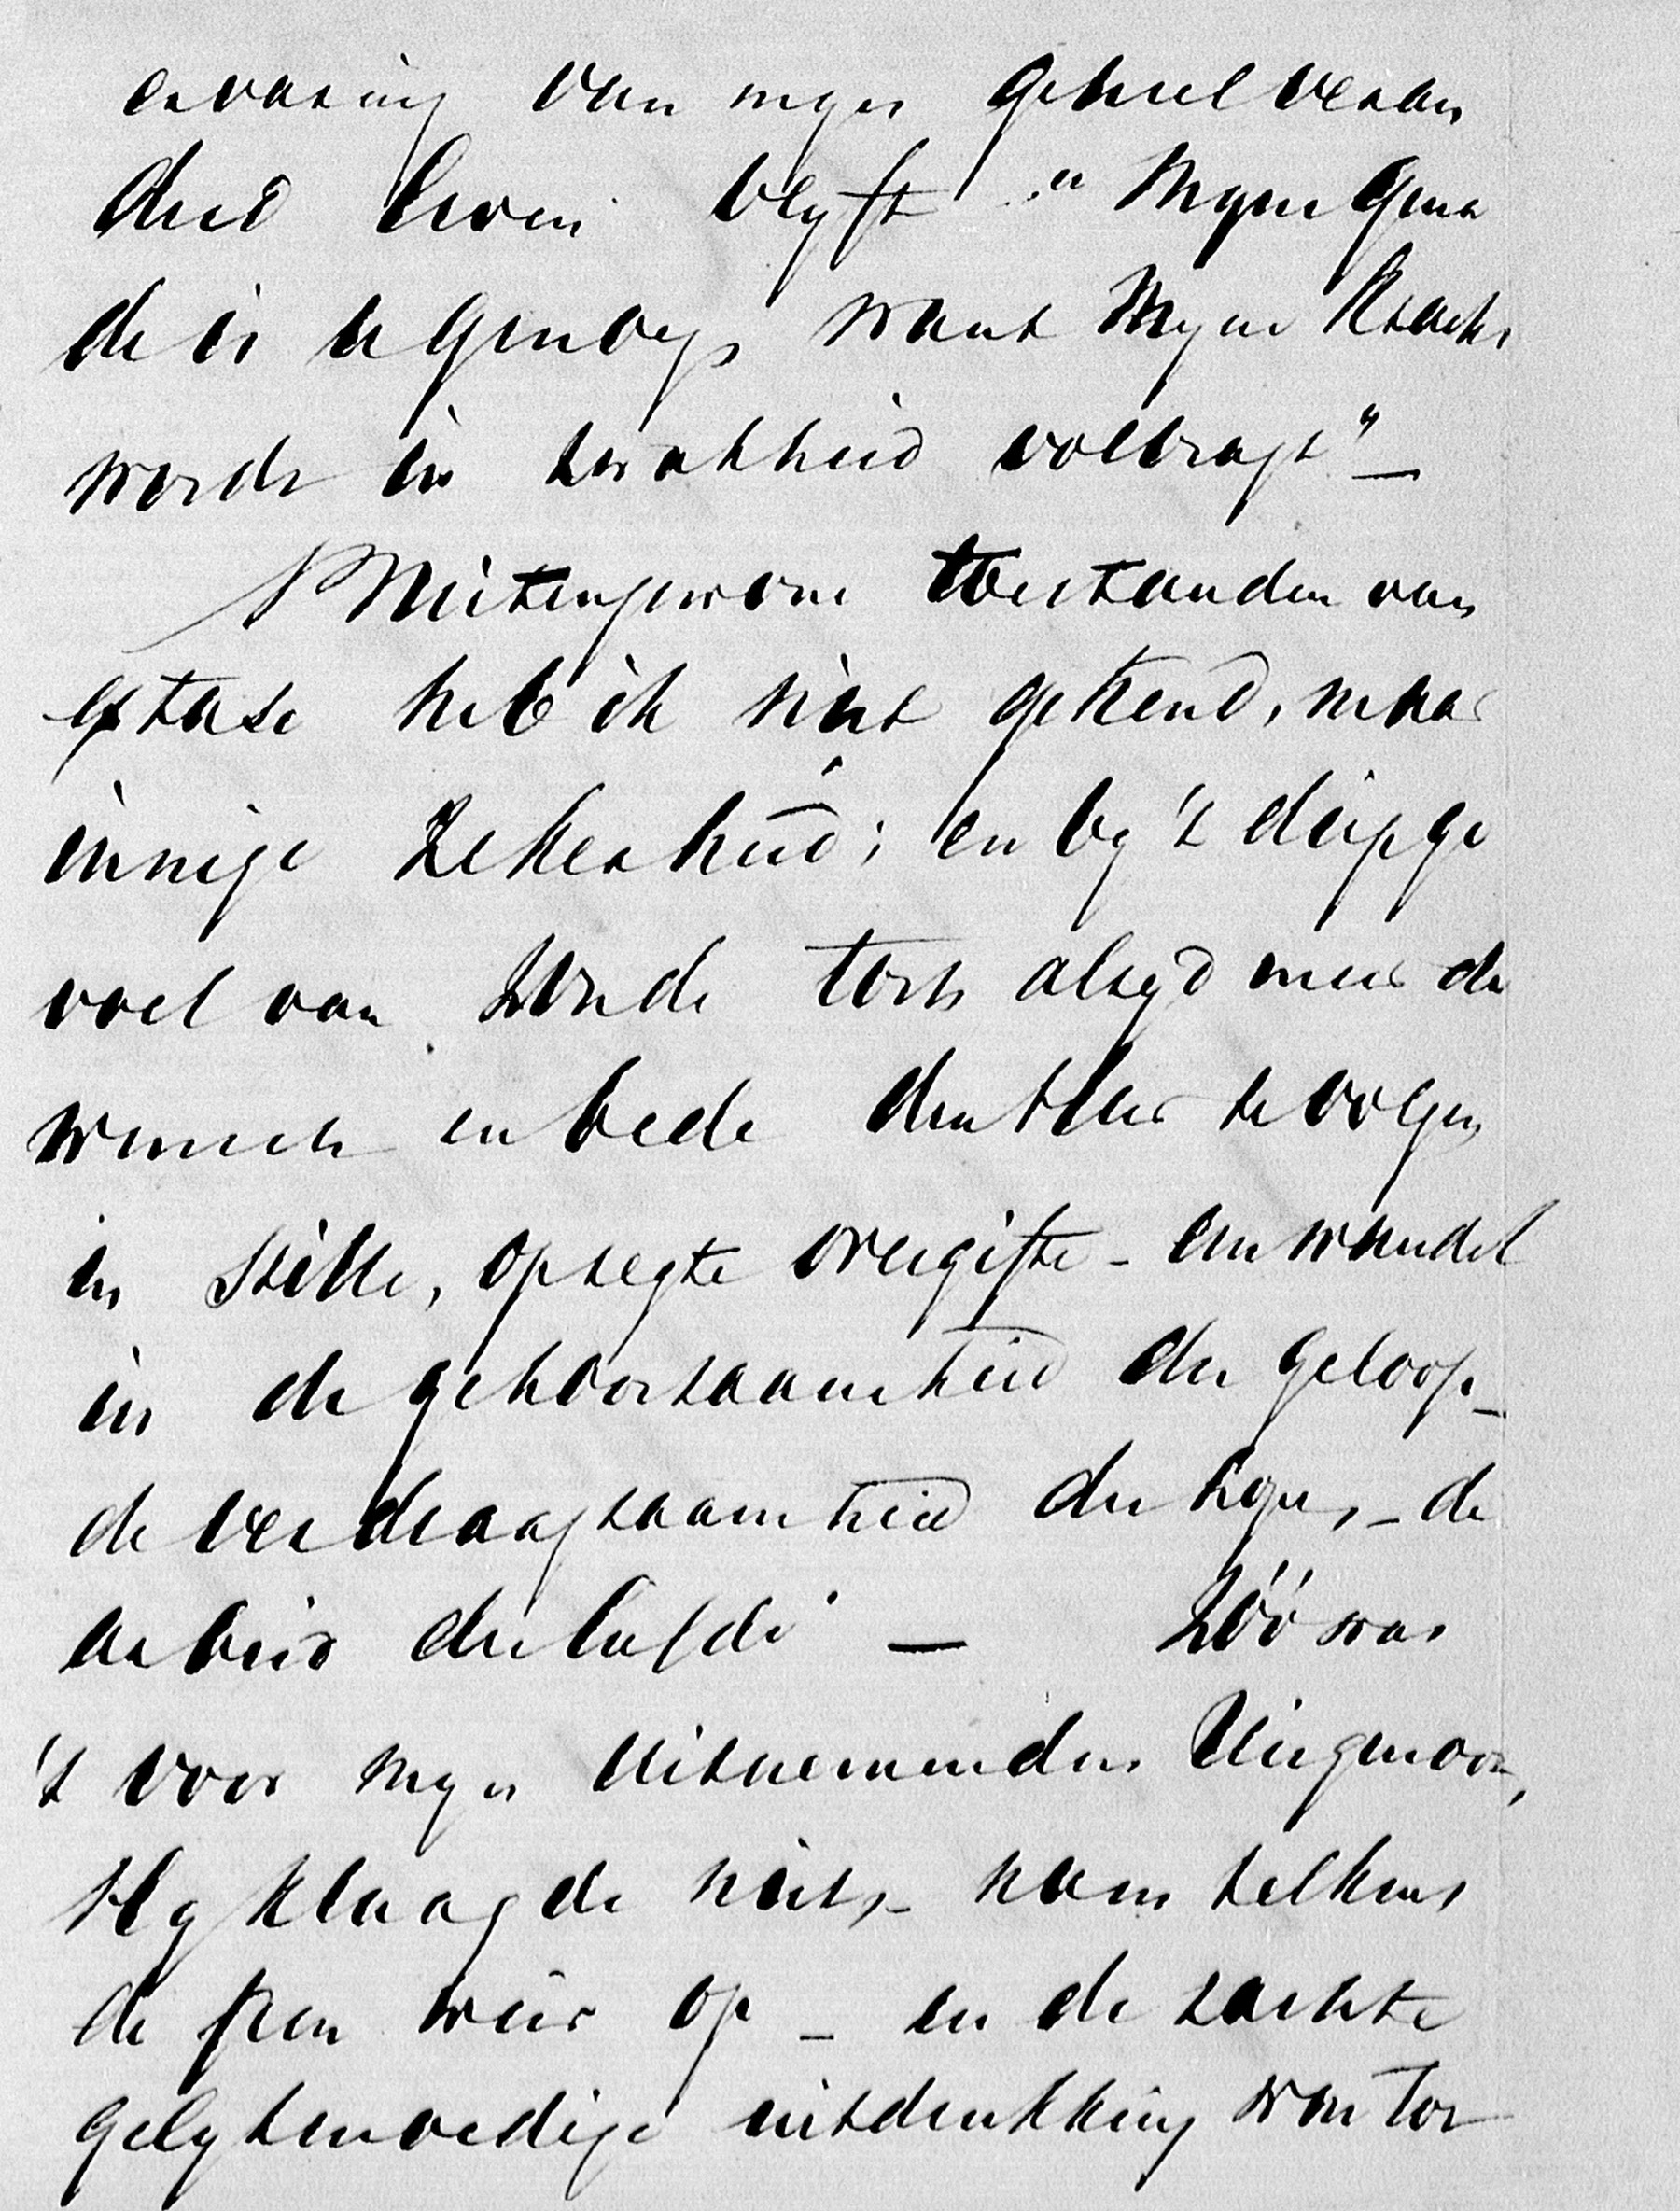 ervaring van mijn geheel veran
derd leven blijft: "Mijne gena
de is u genoeg, want Mijne kracht
wordt in zwakheid volbragt" _
Buitengewone toestanden van
extase heb ik niet gekend, maar
innige zekerheid; en bij 't diep ge
voel van zonde toch altijd meer de
wensch en bede den Heer te volgen
in stille, opregte overgifte - een wandel
in de gehoorzaamheid des geloofs _
de verdraagzaamheid der hope, - de
arbeid der liefde — Zóó was
't voor mijn uitnemenden
Hij klaagde niet, - nam telkens
de pen weer op _ en de zachte
gelijkmoedige uitdrukking van